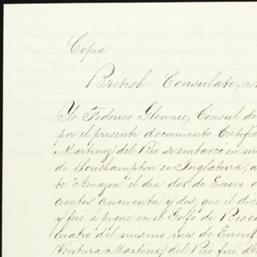 Cópia
British Consulate,
Yo Federico Glennie, Consul de
por el presente documento Certifi
Martinez del Rio se embarcó en
de Southampton en Inglaterra, a
te "Amazon" el dia dos de Enero d
cientos cincuenta y dos, que el dic
y fué á pique en el Golfo de
cuatro del mismo mes de Enero
Ventura Martinez del Rio fué